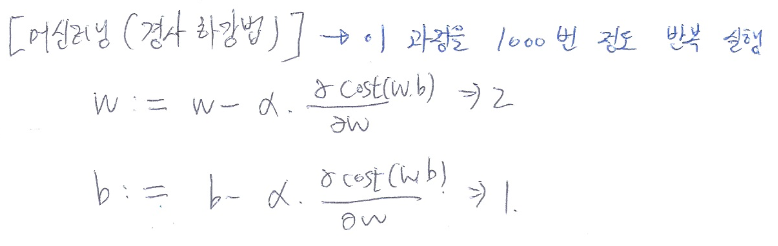 [머신러닝 (경사 하강법)] → 이 과정을 1000번 정도 반복 실행
w := w - α · ∂cost(w,b)/∂w ⇒ 2
b := b - α · ∂cost(w,b)/∂w ⇒ 1.